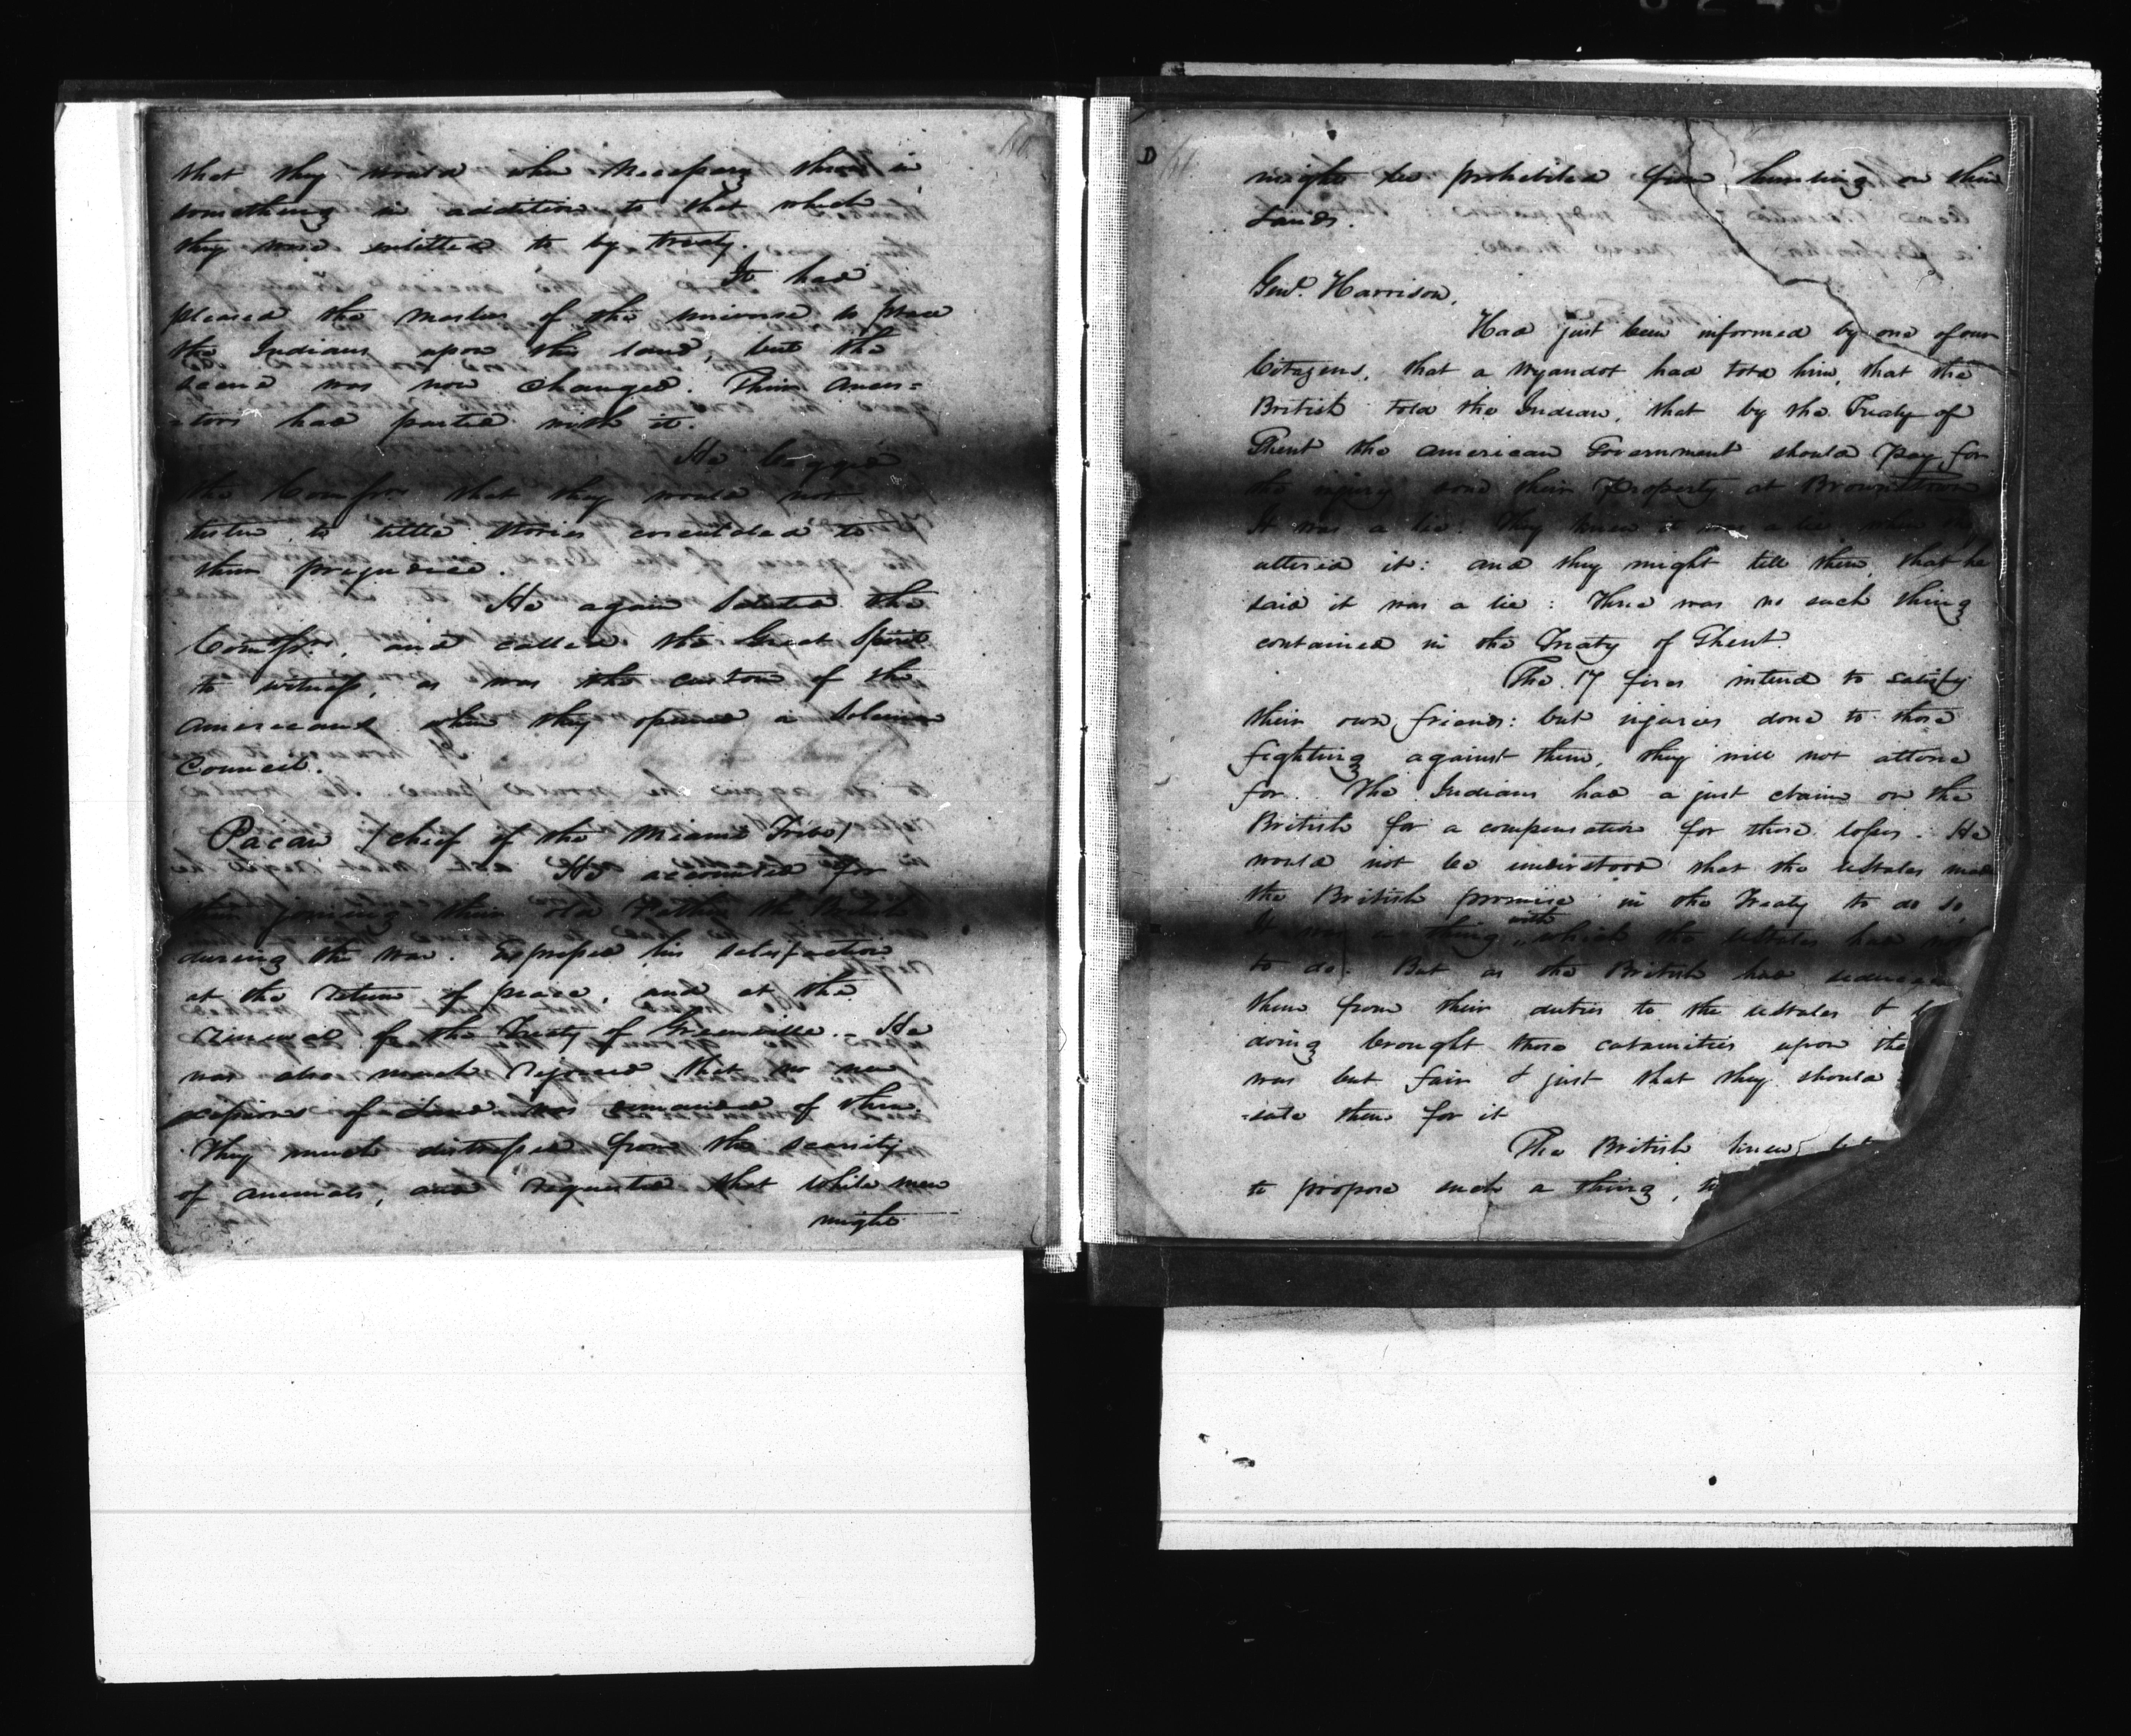 60
that they would when Necessary throw in
something in addition to that which
they were entitled to by treaty.
It had
pleased the master of the universe to place
the Indians upon this land, but the
scene was now changed. Their ances=
=tors had parted with it.
He begged
the Comssrs that they would not
listen to little stories circulated to
their prejudice.
He again saluted the
Comssrs, and called the Great Spirit
to witness, as was the custom of the
Americans when they opened a solemn
Council.
Pacan (chief of the Miami Tribe)
He accounted for
their joining their old Father the British
during the war. Expressed his satisfaction
at the return of peace, and at the
renewal of the Treaty of Greenville. He
was also much rejoiced that no new
cessions of Land was demanded of them.
They much distressed from the scarcity
of animals, and requested that white men
might
D
61
might be prohibited from hunting on their
Lands.
Genl. Harrison,
Had just been informed by one of our
Citizens, that a Wyandot had told him, that the
British told the Indian, that by the Treaty of
Ghent the American Government should pay for
the injury done their property at Brownstown
It was a lie! They knew it was a lie when they
uttered it: and they might tell them, that he
said it was a lie: There was no such thing
contained in the Treaty of Ghent.
The 17 fires intend to satisfy
their own friends: but injuries done to those
fighting against them, they will not attone
for. The Indians had a just claim on the
British for a compensation for those losses. He
would not be understood that the UStates made
the British promise in the Treaty to do so,
It was a thing with which the UStates had not
to do. But as the British had seduced
them from their duties to the UStates &
doing brought those calamities upon the
was but fair & just that they should
=sate them for it
The British knew
to propose such a thing,